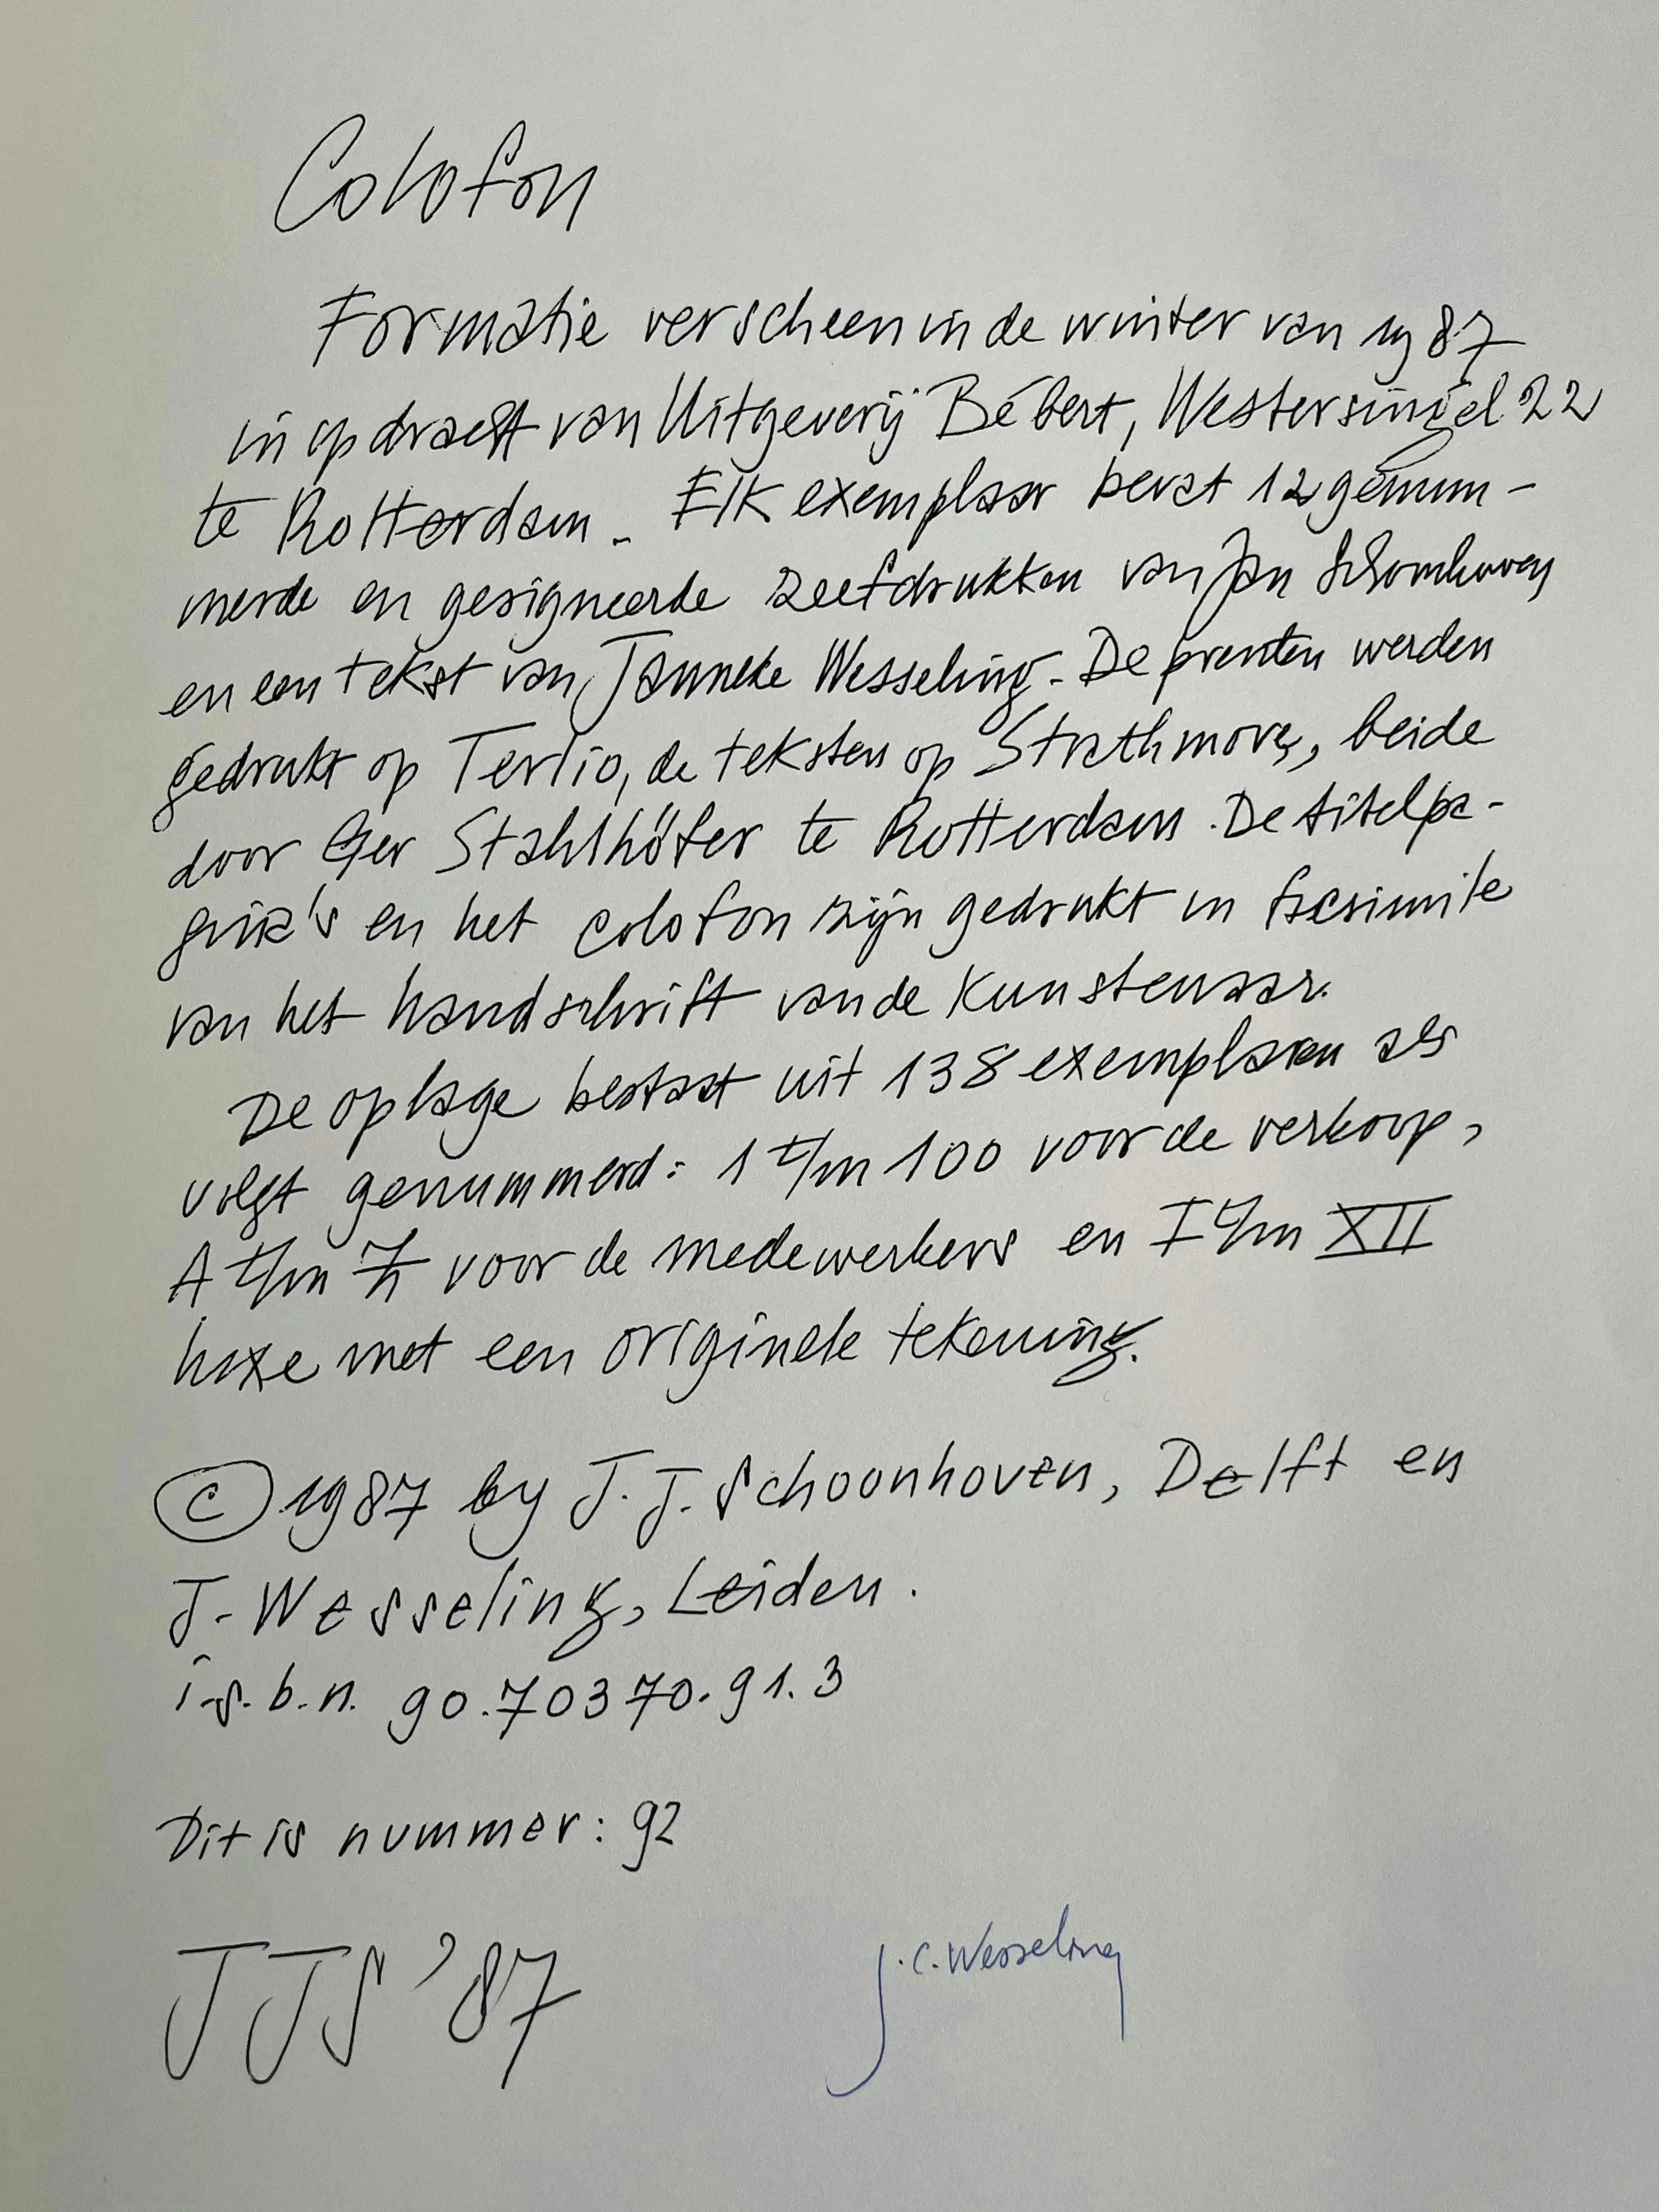 Colofon
Formatie verscheen in de winter van 1987
in opdracht van Uitgeverij Bébert, Westersingel 22
te Rotterdam. Elk exemplaar bevat 12 genum-
merde en gesigneerde zeefdrukken van Jan Schoonhoven
en een tekst van Janneke Wesseling. De prenten werden
gedrukt op Tertio, de teksten op Strathmore, beide
door Ger Stahlhöfer te Rotterdam. De titelpa-
gina's en het colofon zijn gedrukt in facsimile
van het handschrift van de Kunstenaar.
De oplage bestaat uit 138 exemplaren als
volgt genummerd: 1 t/m 100 voor de verkoop,
A t/m Z voor de medewerkers en I t/m XII
luxe met een originele tekening.
© 1987 by J. J. Schoonhoven, Delft en
J. Wesseling, Leiden.
i.s.b.n. 90.70370.91.3
Dit is nummer: 92
JJS '87
J.C. Wesseling